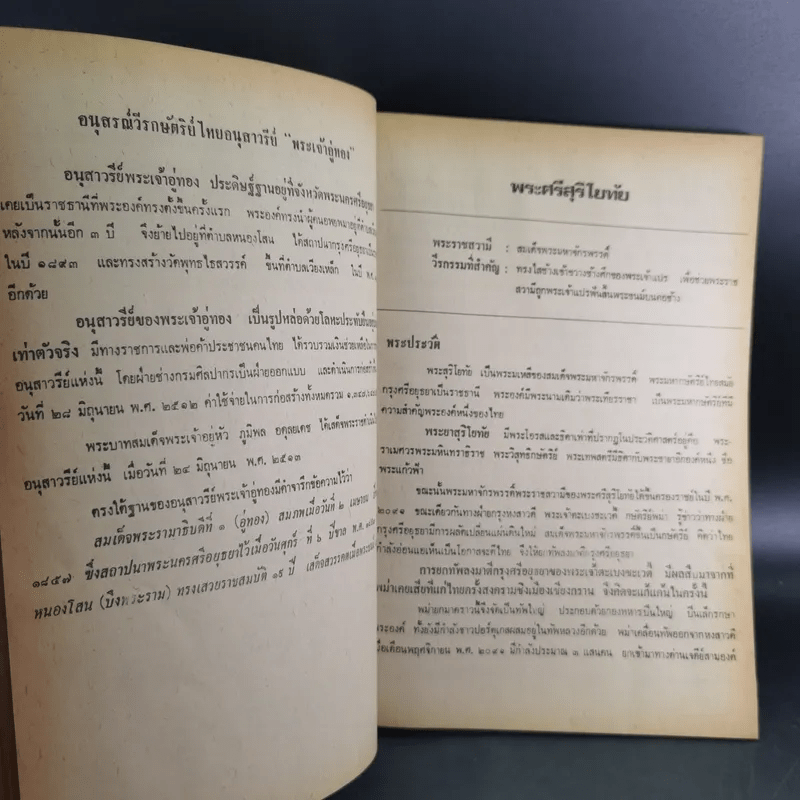 อนุสรณ์วีรกษัตริย์ไทยอนุสาวรีย์ "พระเจ้าอู่ทอง"
อนุสาวรีย์พระเจ้าอู่ทอง ประดิษฐ์ฐานอยู่ที่จังหวัดพระนครศรีอยุธยา
เคยเป็นราชธานีที่พระองค์ทรงตั้งขึ้นครั้งแรก พระองค์ทรงนำผู้คนอพยพมาอยู่ที่ตำบล
หลังจากนั้นอีก ๓ ปี จึงย้ายไปอยู่ที่ตำบลหนองโสน ได้สถาปนากรุงศรีอยุธยา
ในปี ๑๘๙๓ และทรงสร้างวัดพุทธไธสวรรค์ ขึ้นที่ตำบลเวียงเหล็ก ในปี พ.ศ.
อีกด้วย
อนุสาวรีย์ของพระเจ้าอู่ทอง เป็นรูปหล่อด้วยโลหะประทับยืน
เท่าตัวจริง มีทางราชการและพ่อค้าประชาชนคนไทย ได้รวบรวมเงินช่วยเหลือในการ
อนุสาวรีย์แห่งนี้ โดยฝ่ายช่างกรมศิลปากรเป็นฝ่ายออกแบบ และดำเนินการ
วันที่ ๒๘ มิถุนายน พ.ศ. ๒๕๑๒ ค่าใช้จ่ายในการก่อสร้างทั้งหมดรวม
พระบาทสมเด็จพระเจ้าอยู่หัว ภูมิพล อดุลยเดช ได้เสด็จพระราชดำเนิน
อนุสาวรีย์แห่งนี้ เมื่อวันที่ ๒๔ มิถุนายน พ.ศ. ๒๕๑๓
ตรงใต้ฐานของอนุสาวรีย์พระเจ้าอู่ทองมีคำจารึกข้อความไว้ว่า
สมเด็จพระรามาธิบดีที่ ๑ (อู่ทอง) สมภพเมื่อวันที่ ๒ เมษายน
๑๘๕๗ ซึ่งสถาปนาพระนครศรีอยุธยาไว้เมื่อวันศุกร์ ที่ ๖ ปีขาล พ.ศ.
หนองโสน (บึงพระราม) ทรงเสวยราชสมบัติ ๑๙ ปี เสด็จสวรรคตเมื่อ
พระศรีสุริโยทัย
พระราชสวามี : สมเด็จพระมหาจักรพรรดิ์
วีรกรรมที่สำคัญ : ทรงไสช้างเข้าขวางช้างศึกของพระเจ้าแปร เพื่อช่วยพระราช
สวามีถูกพระเจ้าแปรฟันสิ้นพระชนม์บนคอช้าง
พระประวัติ
พระสุริโยทัย เป็นพระมเหสีของสมเด็จพระมหาจักรพรรดิ์ พระมหากษัตริย์ไทยสมัย
กรุงศรีอยุธยาเป็นราชธานี พระองค์มีพระนามเดิมว่าพระเฑียรราชา เป็นพระมหากษัตริย์ที่มี
ความสำคัญพระองค์หนึ่งของไทย
พระยาสุริโยทัย มีพระโอรสและธิดาเท่าที่ปรากฏในประวัติศาสตร์อยู่คือ พระ-
ราเมศวรพระมหินทราธิราช พระวิสุทธิกษัตริย์ พระเทพสตรีมีธิดากับพระชายาอีกองค์หนึ่ง ชื่อ
พระแก้วฟ้า
ขณะนั้นพระมหาจักรพรรดิ์พระราชสวามีของพระศรีสุริโยทัยได้ขึ้นครองราชย์ในปี พ.ศ.
๒๐๙๑ ขณะเดียวกันทางฝ่ายกรุงหงสาวดี พระเจ้าตะเบงชะเวตี้ กษัตริย์พม่า รู้ข่าวว่าทางฝ่าย
กรุงศรีอยุธยามีการผลัดเปลี่ยนแผ่นดินใหม่ สมเด็จพระมหาจักรพรรดิ์ขึ้นเป็นกษัตริย์ คิดว่าไทย
กำลังอ่อนแอเห็นเป็นโอกาสจะตีไทย จึงให้ยกทัพลงมาตีกรุงศรีอยุธยา
การยกทัพลงมาตีกรุงศรีอยุธยาของพระเจ้าตะเบงชะเวตี้ มีผลสืบมาจากที่
พม่าเคยเสียทีแก่ไทยครั้งสงครามชิงเมืองเชียงกราน จึงคิดจะแก้แค้นในครั้งนี้
พม่ายกมาคราวนี้จึงจัดเป็นทัพใหญ่ ประกอบด้วยกองทหารปืนใหญ่ ปืนเล็กรักษา
พระองค์ ทั้งยังมีกำลังชาวปอร์ตุเกสผสมอยู่ในทัพหลวงอีกด้วย พม่าเคลื่อนทัพออกจากหงสาวดี
เมื่อเดือนพฤศจิกายน พ.ศ. ๒๐๙๑ มีกำลังประมาณ ๓ แสนคน ยกเข้ามาทางด่านเจดีย์สามองค์